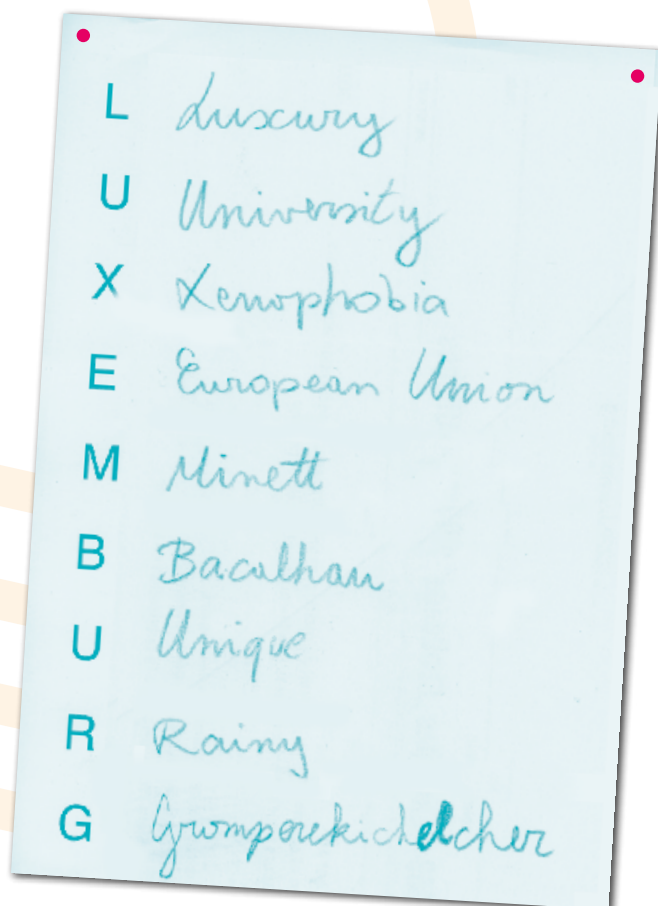 L Luxury
U University
X Xenophobia
E European Union
M Minett
B Bacalhau
U Unique
R Rainy
G Gromperekichelcher